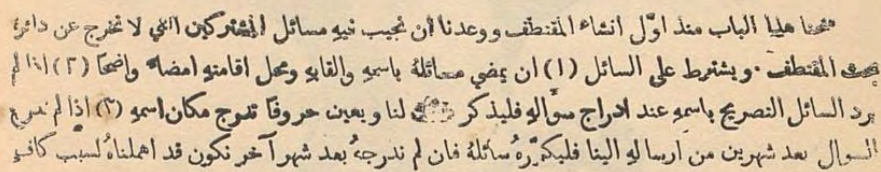 فتحنا هذا الباب منذ اول انشاء المقتطف ووعدنا ان نجيب فيه مسائل المشتركين التي لا تخرج عن دائرة
بحث المقتطف . ويشترط على السائل (١) ان يمضي مسائله باسمه والقابه ومحل اقامته امضاء واضحا (٢) اذا لم
يرد السائل التصريح باسمه عند ادراج سؤاله فليذكر ذلك لنا ويعين حروفا تدرج مكان اسمه (٣) اذا لم ندرج
السوال بعد شهرين من ارساله الينا فليكرّره سائله فان لم ندرجه بعد شهر آخر نكون قد اهملناه لسبب كاف